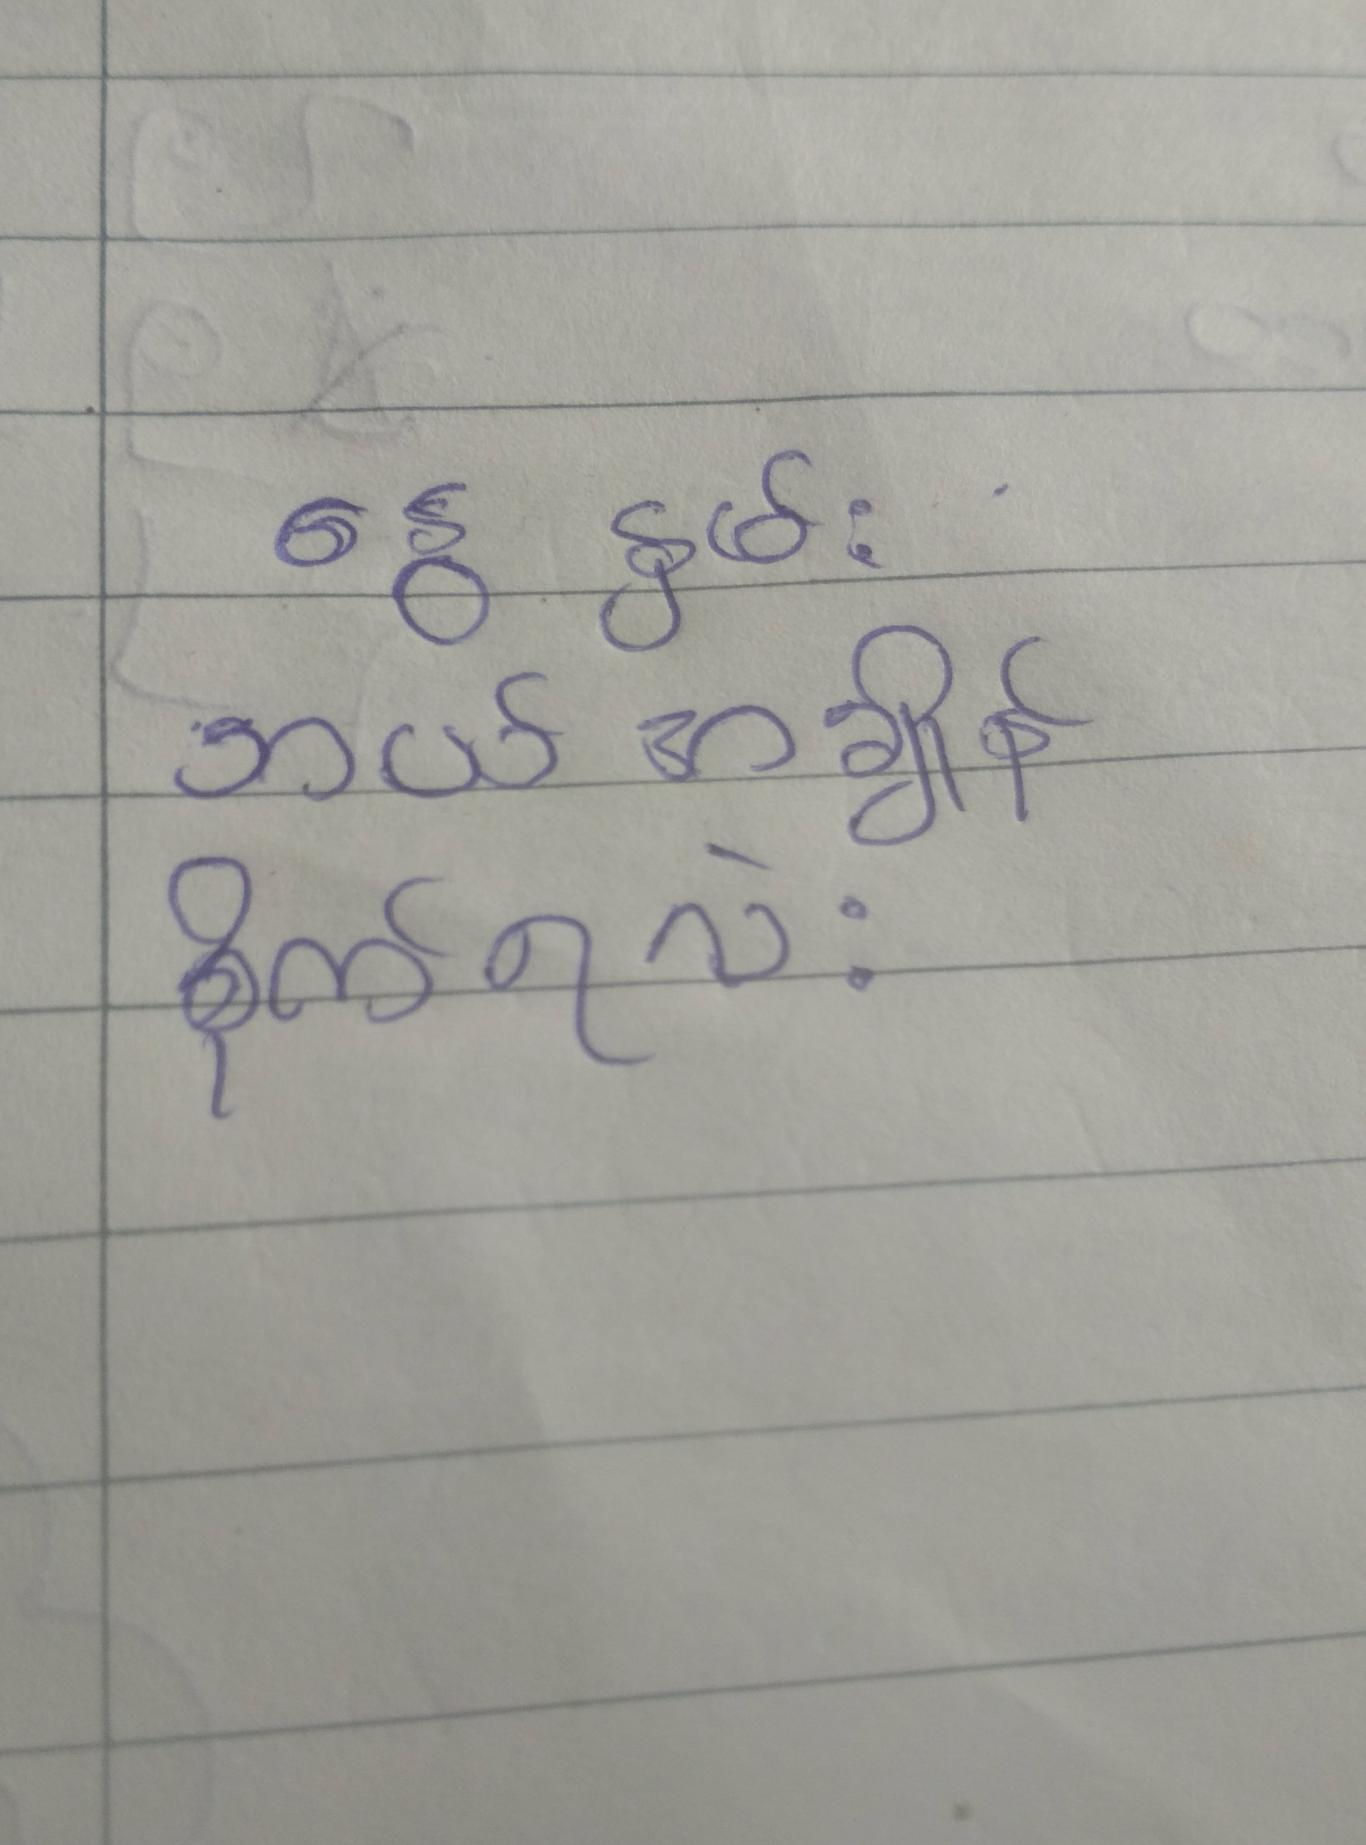 စွေ နွမ်း
ဘယ် အချိန်
စိုက်ရလဲး